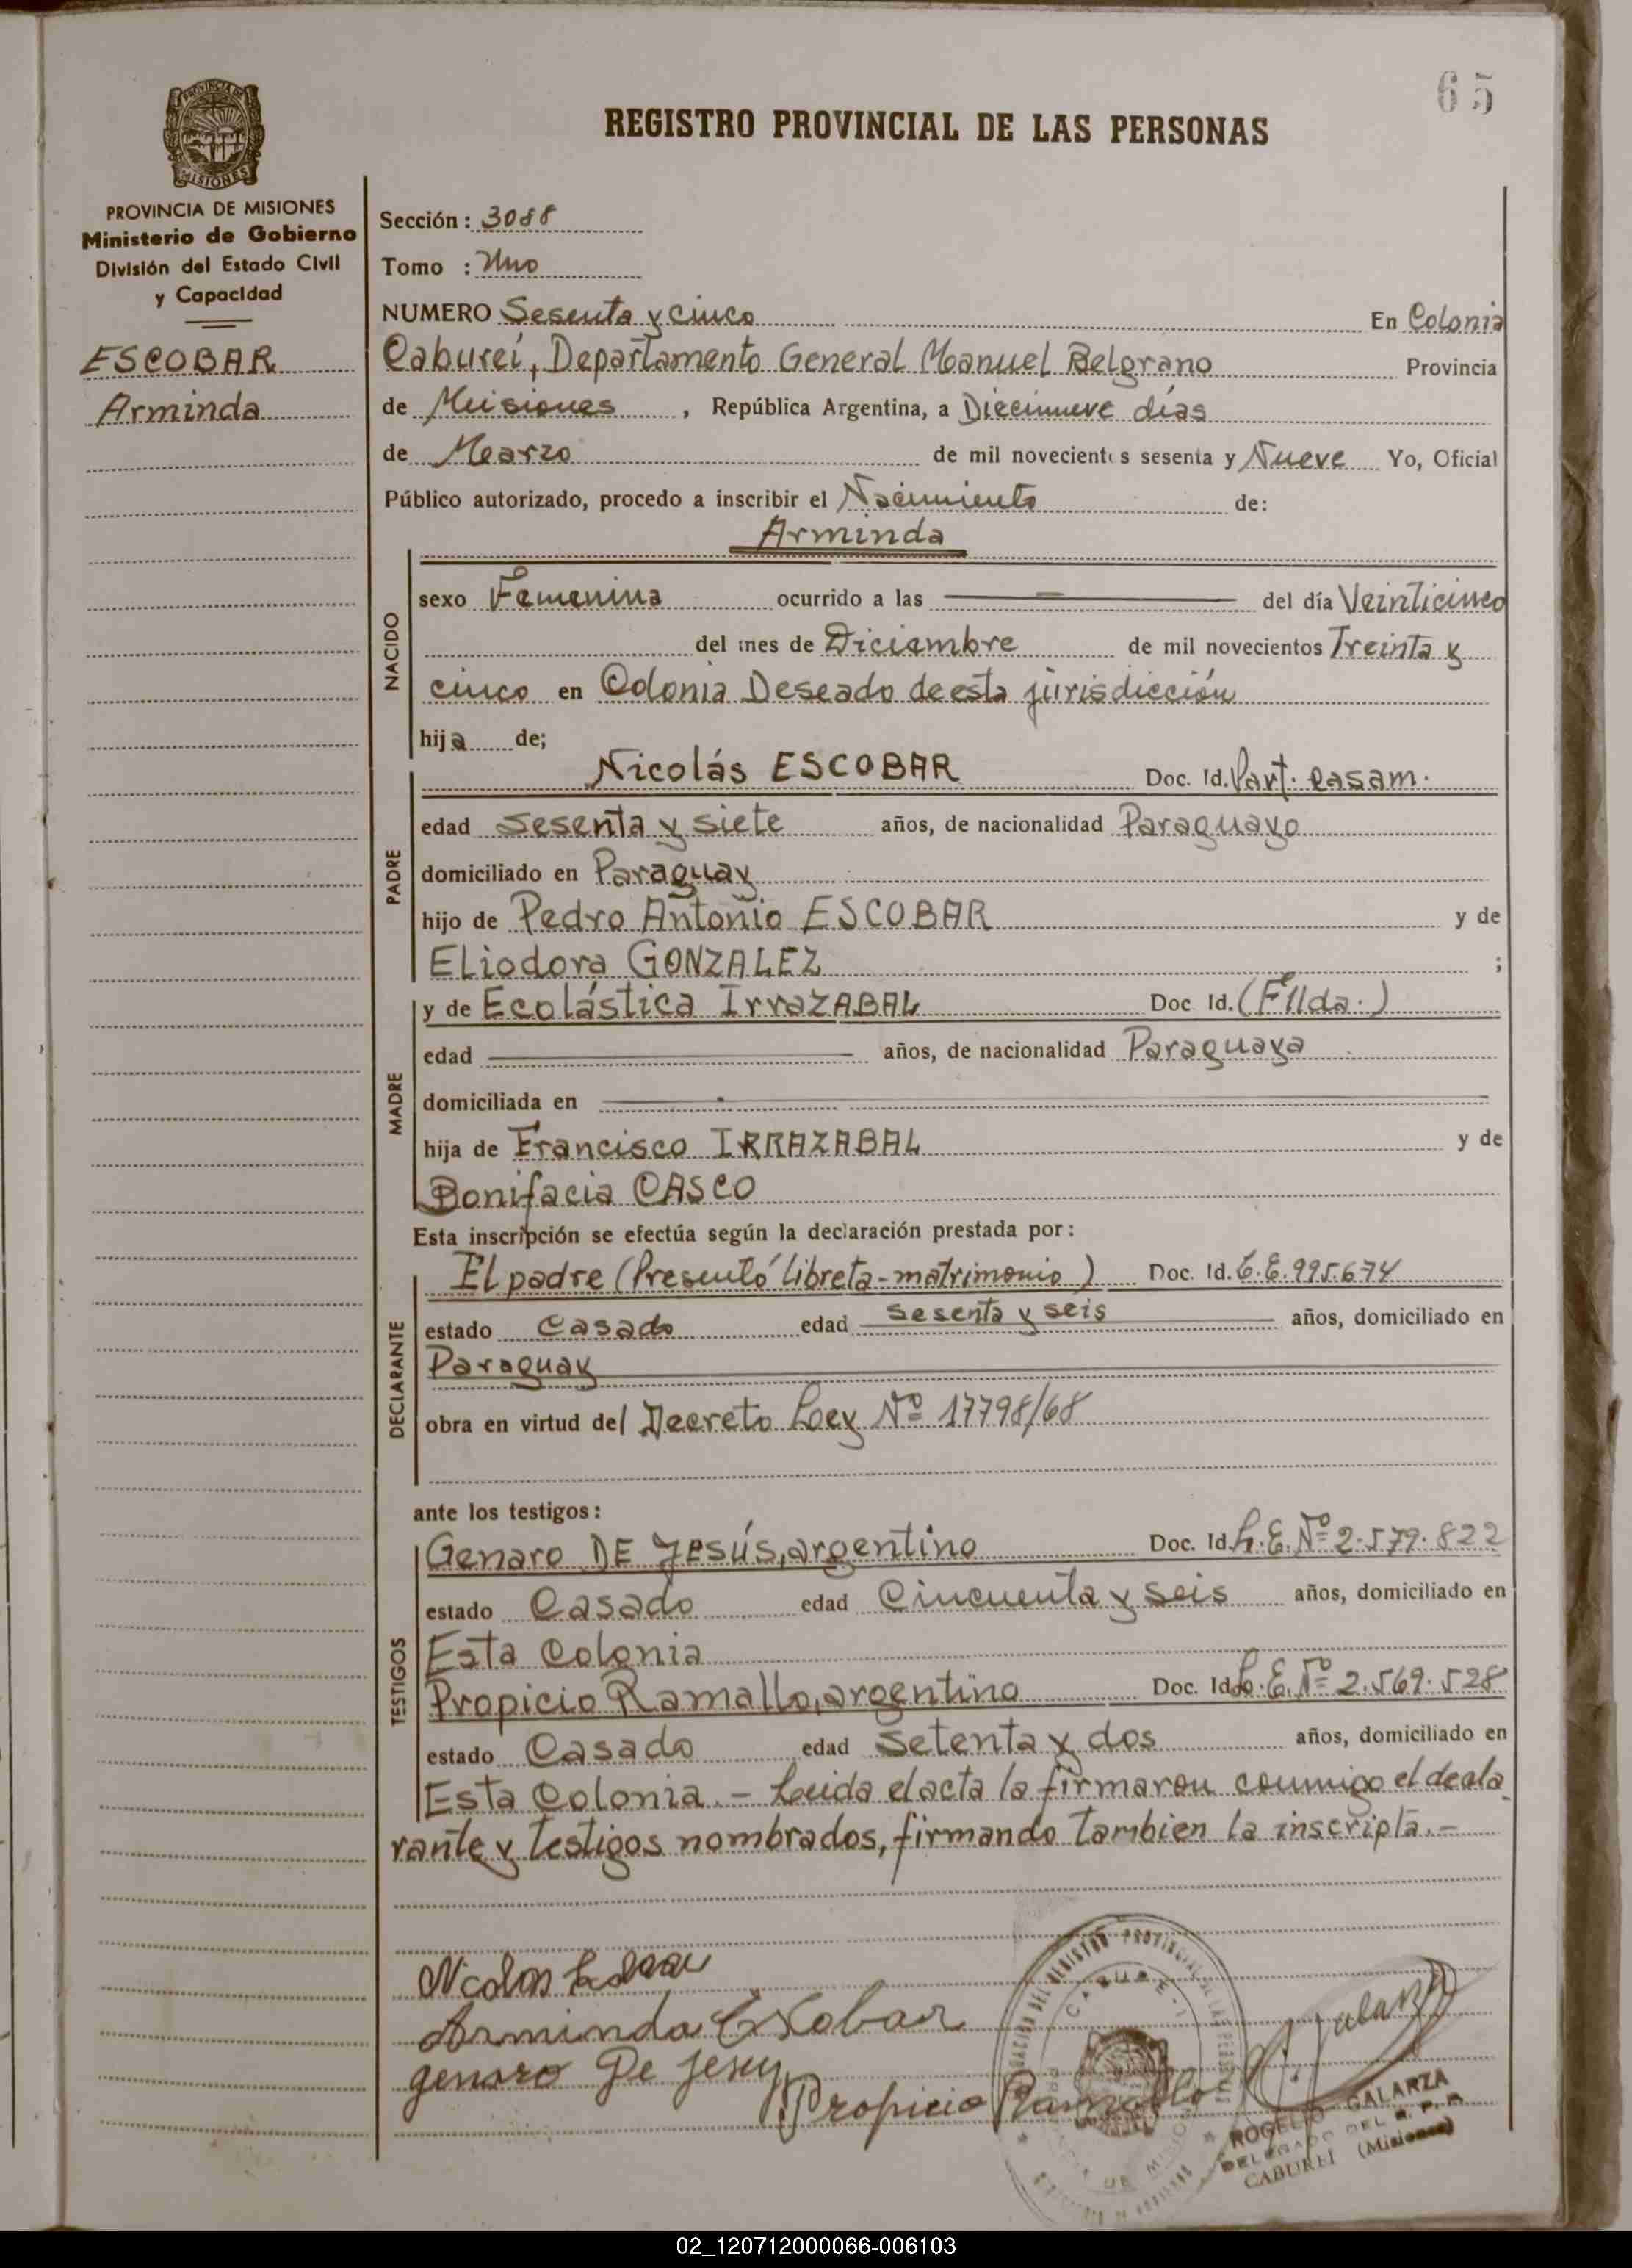 65
REGISTRO PROVINCIAL DE LAS PERSONAS
PROVINCIA DE MISIONES
MISIONES
PROVINCIA DE MISIONES
Ministerio de Gobierno
División del Estado Civil
y Capacidad
ESCOBAR
Arminda
Sección: 3088
Tomo : Uno
NUMERO Sesenta y cinco En Colonia
Caburei, Departamento General Manuel Belgrano Provincia
de Misiones , República Argentina, a Diecinueve días
de Marzo de mil novecientos sesenta y Nueve Yo, Oficial
Público autorizado, procedo a inscribir el Nacimiento de:
Arminda
NACIDO
sexo Femenina ocurrido a las — del día Veinticinco
del mes de Diciembre de mil novecientos Treinta y
cinco en Colonia Deseado de esta jurisdicción
hija de;
PADRE
Nicolás ESCOBAR Doc. Id. Part. casam.
edad sesenta y siete años, de nacionalidad Paraguayo
domiciliado en Paraguay
hijo de Pedro Antonio ESCOBAR y de
Eliodora GONZALEZ ;
MADRE
y de Ecolástica IrrazABAL Doc Id. (Fllda.)
edad — años, de nacionalidad Paraguaya
domiciliada en —
hija de Francisco IRRAZABAL y de
Bonifacia CASCO
Esta inscripción se efectúa según la declaración prestada por:
DECLARANTE
El padre (Presentó libreta-matrimonio) Doc. Id. C.E. 995.674
estado Casado edad sesenta y seis años, domiciliado en
Paraguay
obra en virtud del Decreto Ley Nº 17798/68
ante los testigos:
TESTIGOS
Genaro DE JESÚS, argentino Doc. Id. L.E. Nº 2.579.822
estado Casado edad Cincuenta y seis años, domiciliado en
Esta Colonia
Propicio Ramallo, argentino Doc. Id. L.E. Nº 2.569.528
estado Casado edad setenta y dos años, domiciliado en
Esta Colonia.- Leida el acta la firmaron conmigo el decla
rante y testigos nombrados, firmando tambien la inscripta.-
Nicolas Escobar
Arminda Escobar
genaro De Jesuj
Propicio Ramallo
Galarza
ROGELIO GALARZA
DELEGADO DEL R. P. P.
CABUREI (Misiones)
02_120712000066-006103